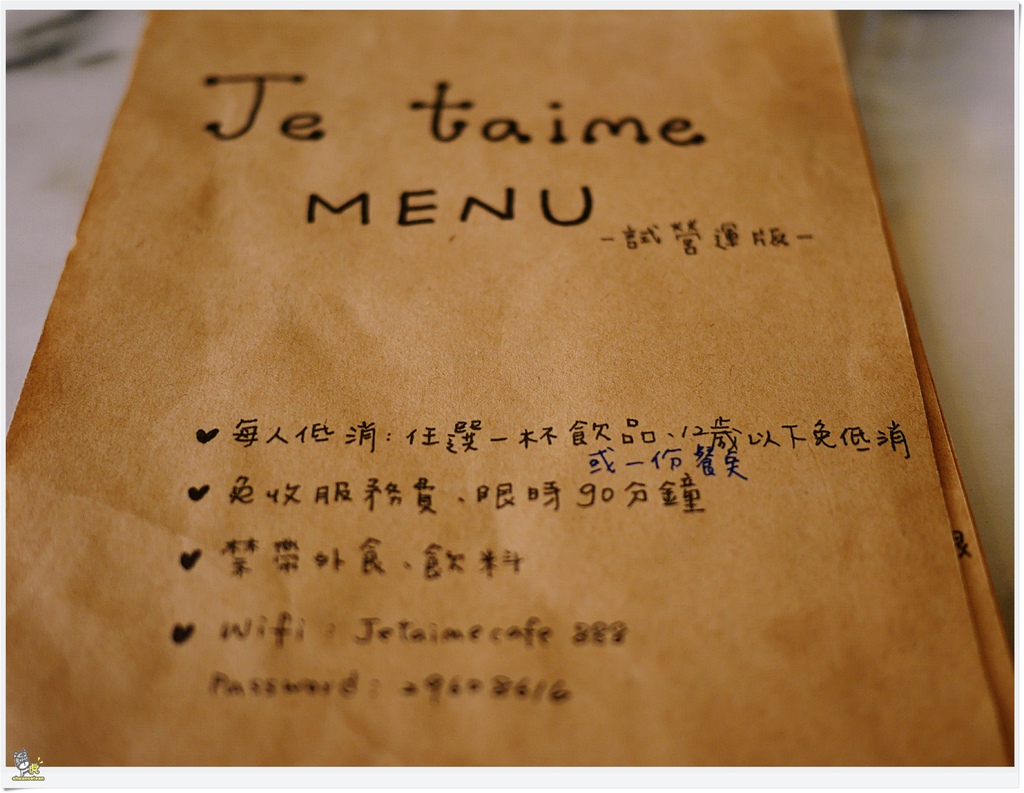 Je taime
MENU
-試營運版-
♥ 每人低消:任選一杯飲品、12歲以下免低消
或一份餐點
♥ 免收服務費、限時90分鐘
♥ 禁帶外食、飲料
♥ Wifi : Jetaimecafe 888
Password : 29608616